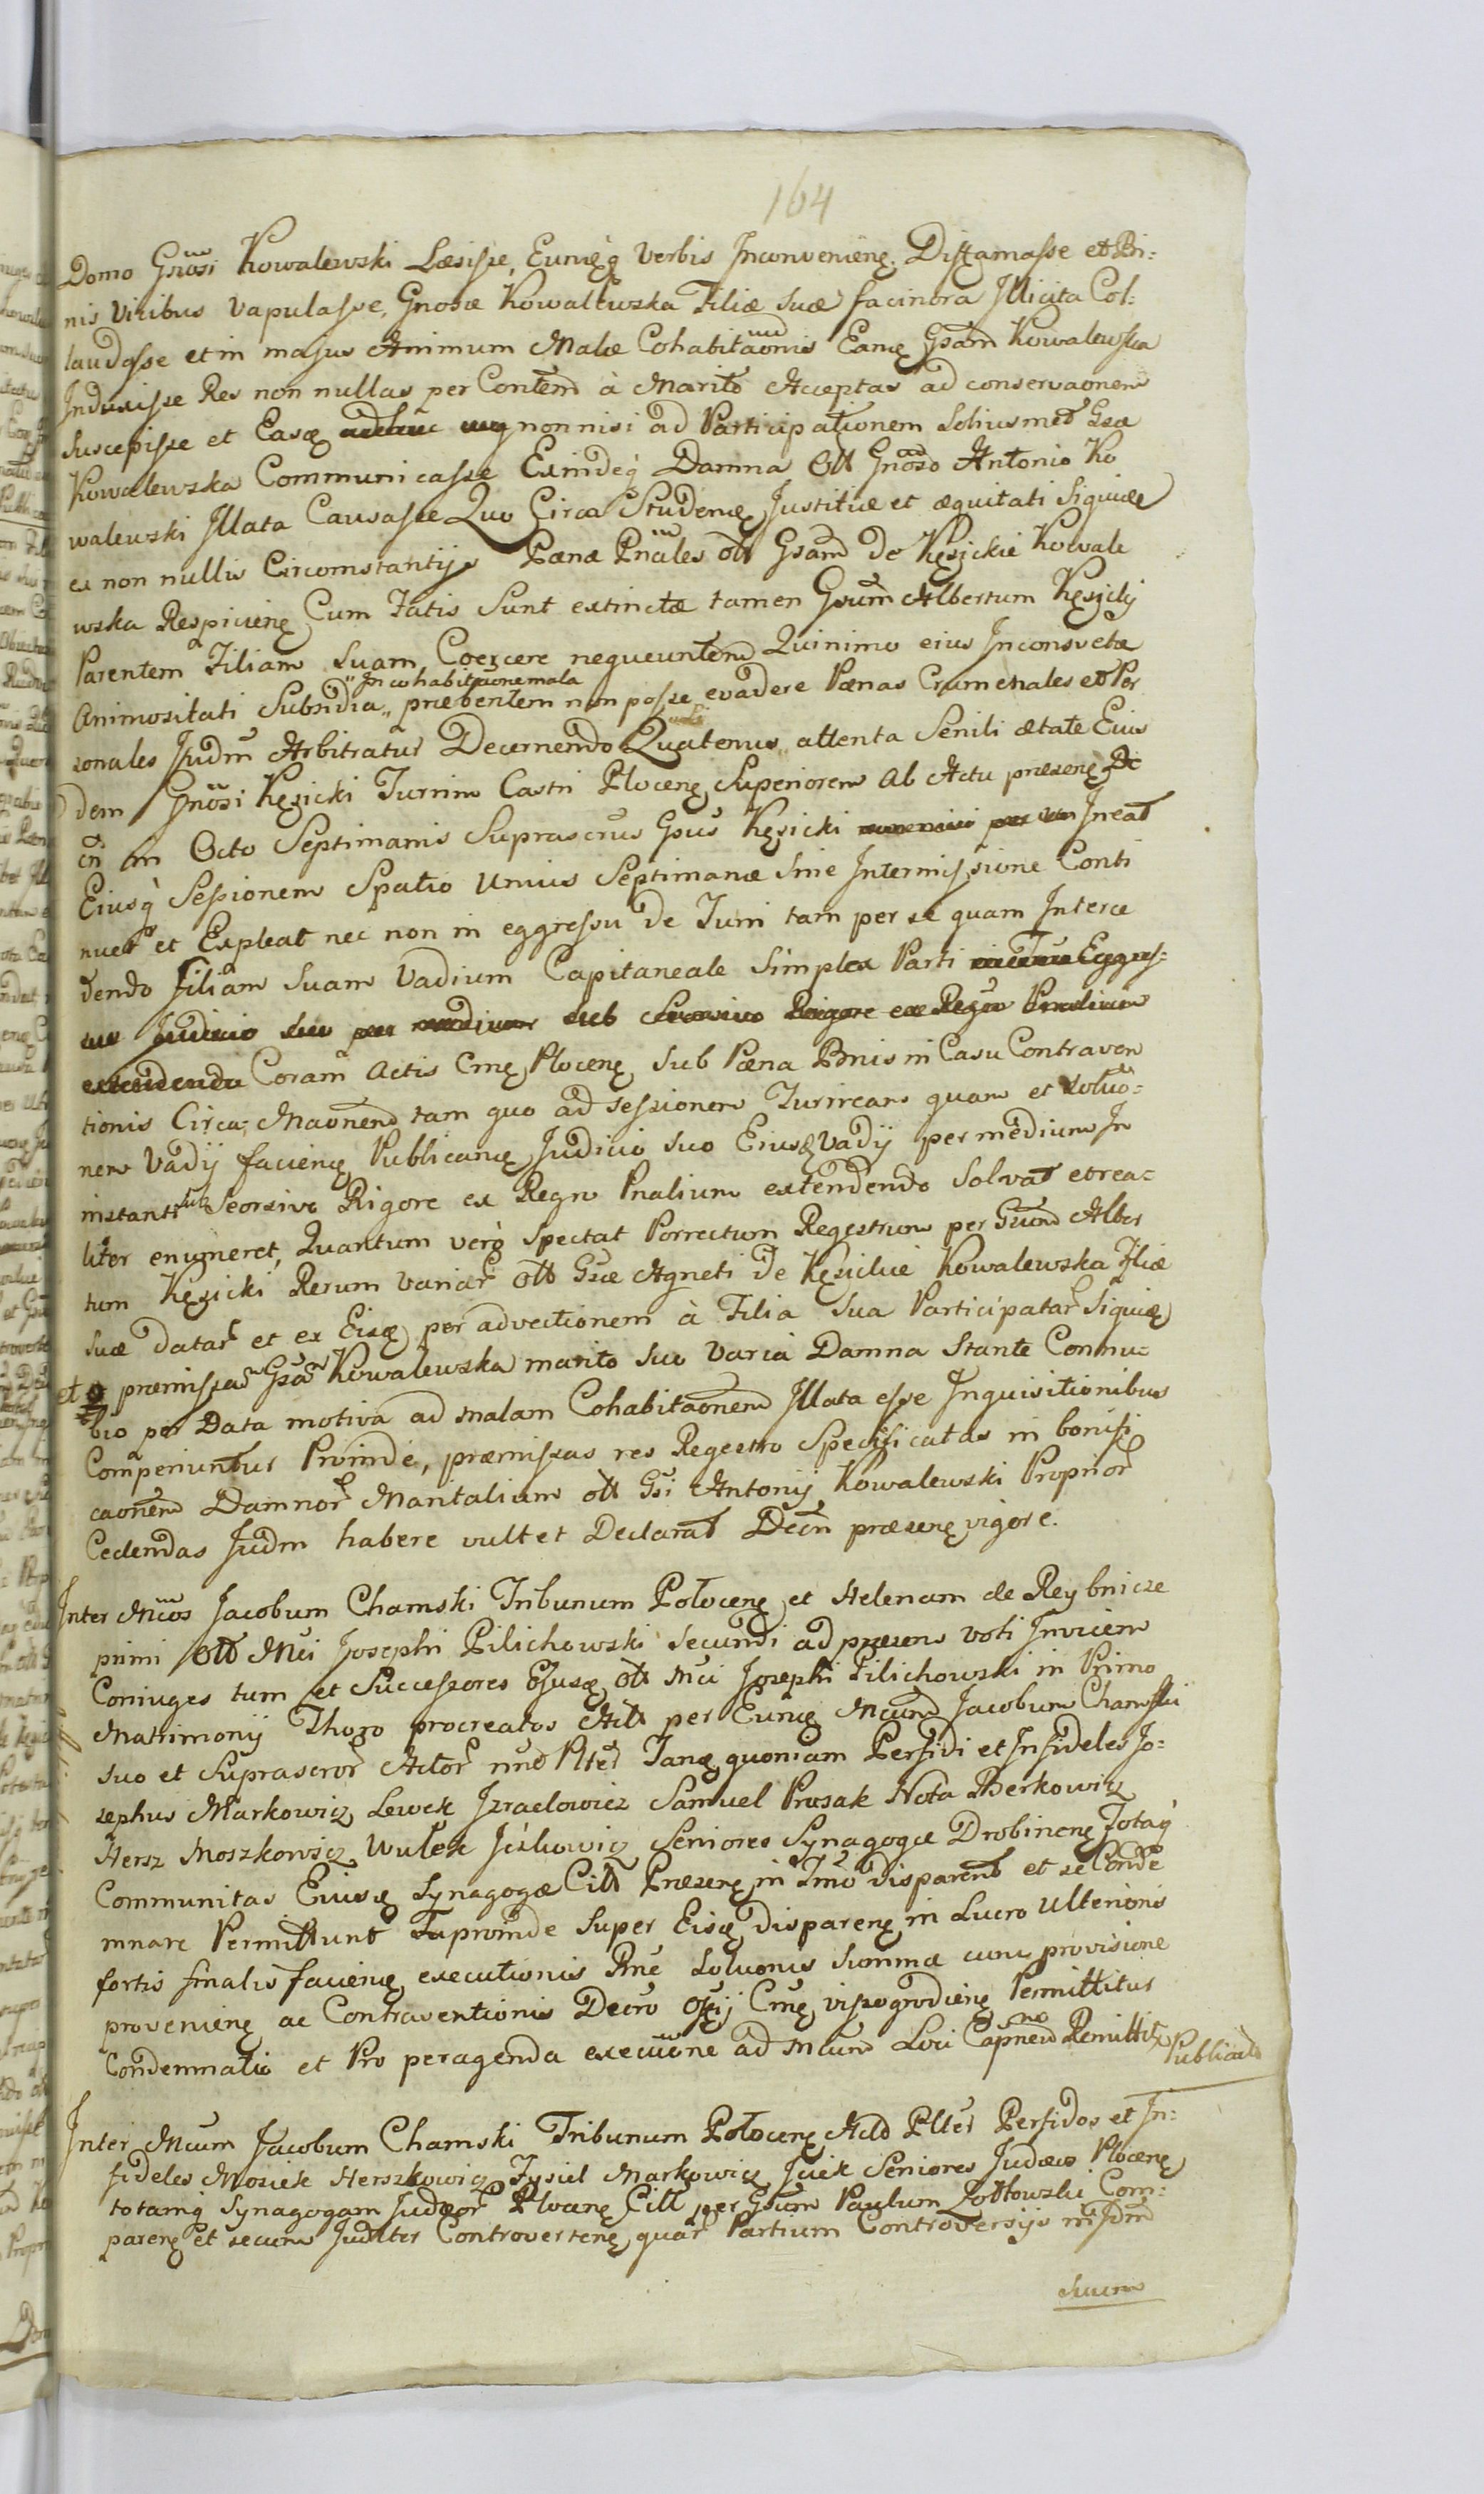 164
Domo Gnosi Kowalewski Læsisse, Eumęq̀ verbis Inconvenienę Diffamasse et Bi:
nis Vicibus Vapulasse, Gnosæ Kowalewska Filiæ suæ facinora Illicita Col:
laudasse et in majus Animum Malæ Cohabitaonis Eamę Gsam Kowalewska
Induxisse Res non nullas per Contem à Marito Acceptas ad conservaonem
suscepisse et Easę non nisi ad Participationem Soliusmet Gsæ
Kowalewska Communicasse Exindeq̀ Damna Ott Gnoso Antonio Ko
walewski Illata Causasse Quo Circa Studenę Justitiæ et æquitati Siquidę
ex non nullis Circomstantijs Pænæ Pnales ott Gsam de Kęsickie Kowale
wska Respicienę Cum Fatis Sunt extinctæ tamen Gsum Albertum Kęsicki
Parentem Filiam Suam Coercere nequeuntem Quinimo eius Inconsvetæ
"In cohabitaone mala
Animositati Subsidia,, præbentem non posse evadere Pænas Crumenales et Per
sonales Judm Arbitratur Decernendo Quatenus,, attenta Senili ætate Eius
dem Gnosi Kęsicki Turrim Castri Plocenę Superiorem ab Actu præsenę De
cri in Octo Septimanis Suprascrus Gsus Kęsicki Ineat
Eiusq̀ Sessionem Spatio Unius Septimanæ Sine Intermissione Conti
nuet et Expleat nec non in eggressu de Turri tam per se quam Interce
dendo filiam Suam Vadium Capitaneale Simplex Parti Eggres:
suo Judicio suo per medium sub Seorsivo Rigore ex Regro Pnalium
extendendo Coram Actis Cnę Plocenę sub Pæna Bnis in Casu Contraven
tionis Circa Maonem tam quo ad sessionem Turricam quam et Soluo:
nem Vadij facienę Publicanę Judicio suo Eiusę Vadij per medium In
instanti sub Seorsivo Rigore ex Regro Pnalium extendendo Solvat et rea:
liter enumeret, Quantum verò Spectat Porrectum Regestrum per Gsum Alber
tum Kęsicki Rerum variar Ott Gsæ Agneti de Kęsickie Kowalewska Filiæ
suæ datar et ex Eisę per advectionem à Filia Sua Participatar Siquidę
et præmissa Gsa Kowalewska marito suo varia Damna Stante Connu:
bio per Data motiva ad malam Cohabitaonem Illata esse Inquisitionibus
Comperiuntur Proinde, præmissas res Regestro Specificatas in bonifi
caonem Damnor Maritalium ott Gsi Antonij Kowalewski Proprior
Cedendas Judm habere vult et Declarat Decri præsenę vigore.
Inter Mcos Jacobum Chamski Tribunum Plocenę et Helenam de Reybnicze
primi Ott Mci Josephi Pilichowski secundi ad præsens voti Invicem
Coniuges tum et Successores Ejusę ott Mci Josephi Pilichowski in Primo
Matrimonij Thoro procreatos Act per Eumę Mcum Jacobum Chamski
suo et Suprascror Actor nne Plter Tanę quoniam Perfidi et Infideles Jo:
sephus Markowicz Lewek Izraelowicz Samuel Prusak Nota Berkowicz
Hersz Moszkowicz Wulek Jckowicz Seniores Synagogæ Drobinenę Totaq̀
Communitas Eiusę Synagogæ Citt Præsenę in Tmo disparent et se Conde
mnare Permittunt Taproinde super Eisę disparenę in Lucro Ulterioris
fortis finalis facienę executionis Rne Soluonis Summæ cum provisione
provenienę ac Contraventionis Decro Offij Cnę Wyszogrodienę Permittitur
Condemnatio et Pro peragenda execuone ad Mcum Loci Capneum Remittit
Publicat
Inter Mcum Jacobum Chamski Tribunum Plocenę Act Plter Perfidos et In:
fideles Mosiek Herszkowicz Fysiel Markowicz Juiek Seniores Judæos Plocenę
totamq Synagogam Judæor Plocenę Citt per Gsum Paulum Zołtowski Com:
parenę et secum Judlter Controvertenę quar Partium Controversijs in Jdm
suum